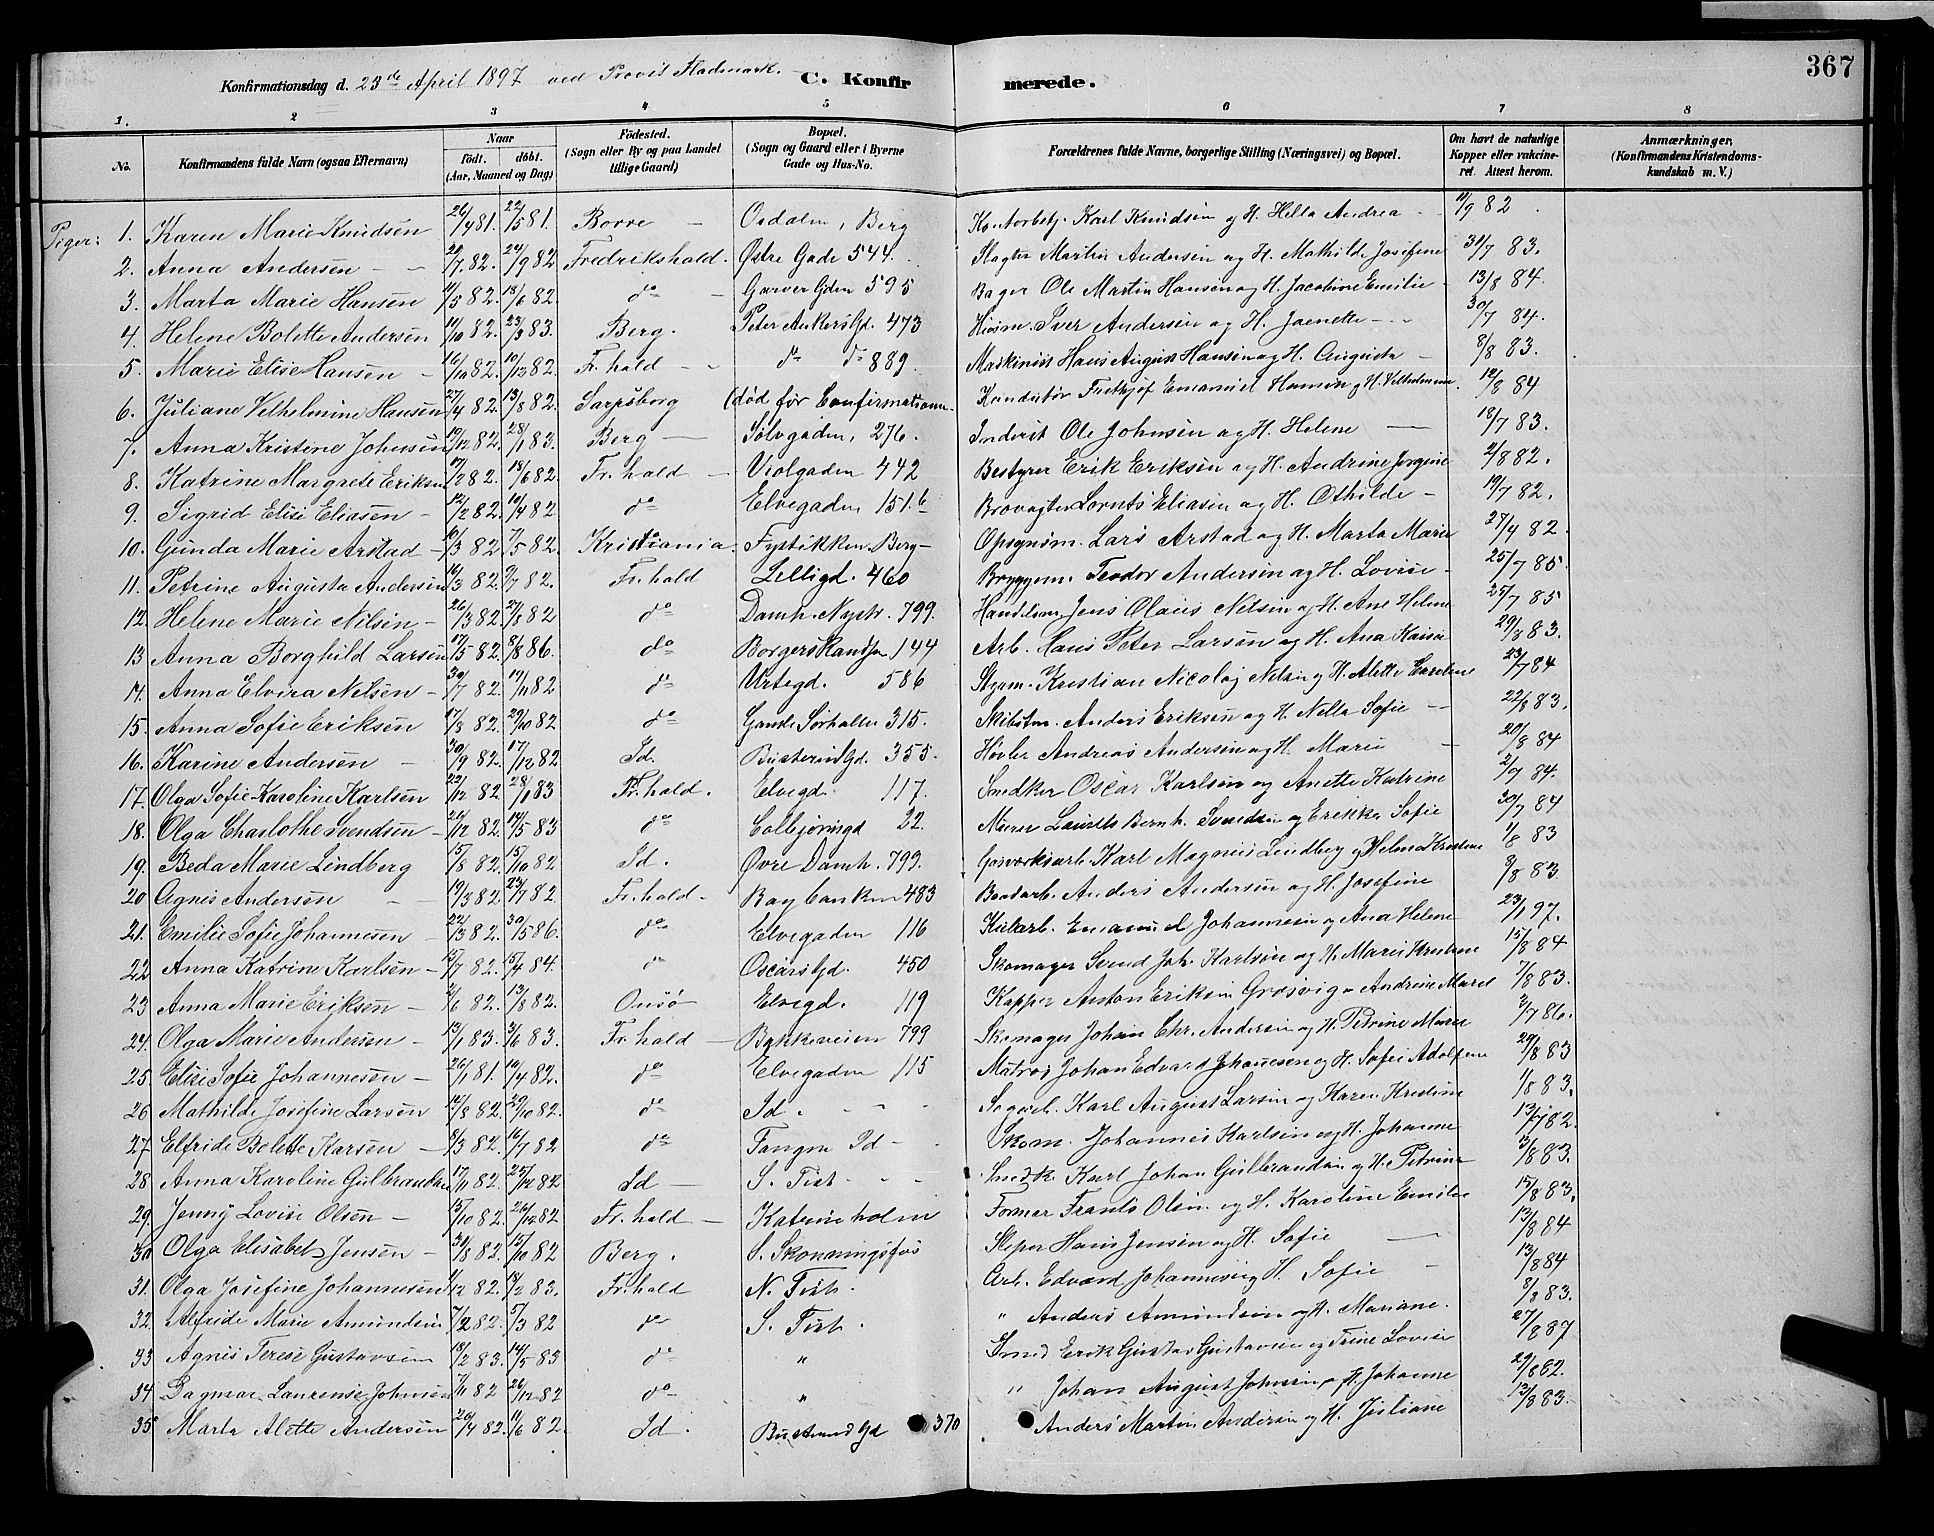 367
Konfirmationsdag d. 23de April 1897 ved Provst Fladmark. C. Konfirmerede.
1. 2 3 4 5 6 7 8
No. Konfirmandens fulde Navn (ogsaa Efternavn) Naar födt. döbt. (Aar, Maaned og Dag) Födested. (Sogn eller By og paa Landet tillige Gaard) Bopæl. (Sogn og Gaard eller i Byerne Gade og Hus-No. Forældrenes fulde Navne, borgerlige Stilling (Næringsvei) og Bopæl. Om havt de naturlige Kopper eller vaccineret. Attest herom. Anmærkninger, (Konfirmandens Kristendomskundskab m. V.)
Piger: 1. Karen Marie Knudsen 26/4 81. 22/5 81. Borre - Osdalen, Berg Kontorbetj. Karl Knudsen og H. Hella Andrea 11/9 82
2. Anna Andersen 21/7 82. 24/9 82 Fredrikshald. Østre Gade 544. Slagter Martin Andersen og H. Mathilde Josefine 31/7 83.
3. Marta Marie Hansen 11/5 82. 18/6 82. do Garver Gden 595 Bager Ole Martin Hansen og H. Jacobine Emilie 13/8 84.
4. Helene Bolette Andersen 11/10 82. 23/3 83. Berg. Peter Ankers Gd. 473 Husm. Iver Andersen og H. Jaenette 30/7 84.
5. Marie Elise Hansen 16/10 82. 10/12 82. Fr.hald do do 889. Maskinist Hans August Hansen og H. Augusta 8/8 83.
6. Juliane Vilhelmine Hansen 27/4 82. 13/8 82. Sarpsborg (død før Confirmationen. Konduktør Frithjof Emanuel Hansen og H. Vilhelmine. 12/8 84
7. Anna Kristine Johnsen 19/12 82. 28/1 83. Berg Sølvgaden, 276. Inderst Ole Johnsen og H. Helene 18/7 83.
8. Katrine Margrete Eriksen 18/6 82. Fr.hald Violgaden 442 Bestyrer Erik Eriksen og H. Andrine Jorgine 2/8 82.
9. Sigrid Elise Eliasen 12/2 82. 10/4 82 do Elvegaden 151.b Brovagter Lornts Eliasen og H. Othilde 19/7 82.
10. Gunda Marie Arstad 16/3 82. 7/5 82. Kristiania. Fystikken Berg Opsynsm. Lars Arstad og H. Marta Marie 27/4 82.
11. Petrine Augusta Andersen 16/3 82. 9/7 82. Fr.hald Lilligd. 460 Bryggem. Teodor Andersen og H. Lovise 25/7 85.
12. Helene Marie Nilsen 26/3 82. 27/8 82 do Damh. Nystr. 799. Handelsm. Jens Olaus Nilsen og H. Ane Helene 25/7 85
13 Anna Borghild Larsen 17/5 82. 8/8 86. do Borgerskandsen 144 Arb. Hans Peter Larsen og H. Ana Kaisa 29/8 83.
14. Anna Elvira Nilsen 30/7 82. 19/11 82 do Urtegd. 586 Styrm. Kristian Nicolaj Nilsen og H. Alette Caroline 23/7 84
15. Anna Sofie Eriksen 17/8 82. 29/10 82 do Gamle Sørhalla 315. Skibstm. Anders Eriksen og H. Nella Sofie 22/8 83.
16. Karine Andersen 30/9 82. 17/12 82 Id. Busterud Gd. 355. Høvler Andreas Andersen og H. Marie 20/8 84
17. Olga Sofie Karoline Karlsen 22/12 82. 28/1 83 Fr.hald. Elvegd. 117. Snedker Oscar Karlsen og Anette Katrine 2/7 84.
18. Olga Charlothe Svendsen 26/12 82. 14/5 83 do Colbjørnsgd 22. Murer Laurits Bernh. Svendsen og Erikka Sofie 30/7 84
19. Beda Marie Lindberg 15/8 82. 15/10 82 Id. Øvre Damh. 799. Gasværksarb. Karl Magnus Lindberg og Helene Kristine 1/8 83
20 Agnes Andersen 19/3 82. 23/7 82. Fr.hald. Raybanken 483 Bordarb. Anders Andersen og H. Josefine 8/8 83.
21. Emilie Sofie Johannesen 22/3 82. 30/5 86. do Elvegaden 116 Kularb. Emanuel Johannesen og Ana Helene 23/1 97.
22. Anna Katrine Karlsen 15/7 82. 15/4 84. do Oscars Gd. 450 Skomager Svend Joh. Karlsen og H. Marie Kristine 15/8 84
23 Anna Marie Eriksen 2/6 82. 13/8 82. Onsø Elvegd. 119 Kapper Anton Eriksen Grosvig - Andrine Marie 7/8 83.
24. Olga Marie Andersen 13/1 83. 3/6 83. Fr.hald Bakkeveien 799 Skomager Johan Chr. Andersen og H. Petrine Marie 3/7 86.
25. Elise Sofie Johannesen 26/1 81. 10/4 82. do Elvegaden 115 Matros Johan Edvard Johannesen og H. Sofie Adolfine 29/8 83
26 Mathilde Josefine Larsen 12/8 82. 29/10 82. do Id. Sagarb. Karl August Larsen og Karen Kristine 1/8 83.
27 Elfride Bolette Karsen 8/3 82. 16/7 82 do Tangen Id Skom. Johannes Karlsen og H. Johanne 13/7 82.
28 Anna Karoline Gulbrandsen 17/11 82. 25/12 82 Id S. Tist. Snedk. Karl Johan Gulbrandsen og H. Petrine 3/8 83.
29. Jenny Lovise Olsen 15/10 82. 26/12 82 Fr.hald Katrineholm Former Frants Olsen og H. Karoline Emilie 15/8 83.
30 Olga Elisabet Jensen 31/8 82. 15/10 82 Berg. S. Skonningsfos Sliper Hans Jensen og H. Sofie 13/8 84
31. Olga Josefine Johannesen 1/12 82. 18/2 83. Fr.hald N. Tist. Arb. Edvard Johannesen og H. Sofie 13/8 84
32. Alfride Marie Amundsen 7/2 82. 5/3 82 do S. Tist. " Anders Amundsen og H. Mariane. 8/8 83.
33 Agnes Terese Gustavsen 18/2 83. 14/5 83 do " Smed Erik Gustav Gustavsen og Trine Lovise 27/8 87
34 Dagmar Laurense Johnsen 7/11 82 26/12 82 do " " Johan August Johnsen og H. Johanne 29/8 82.
35 Marta Alette Andersen 20/4 82. 11/6 82. Id. Busterud Gd 370 Anders Martin Andersen og H. Juliane 13/8 83.